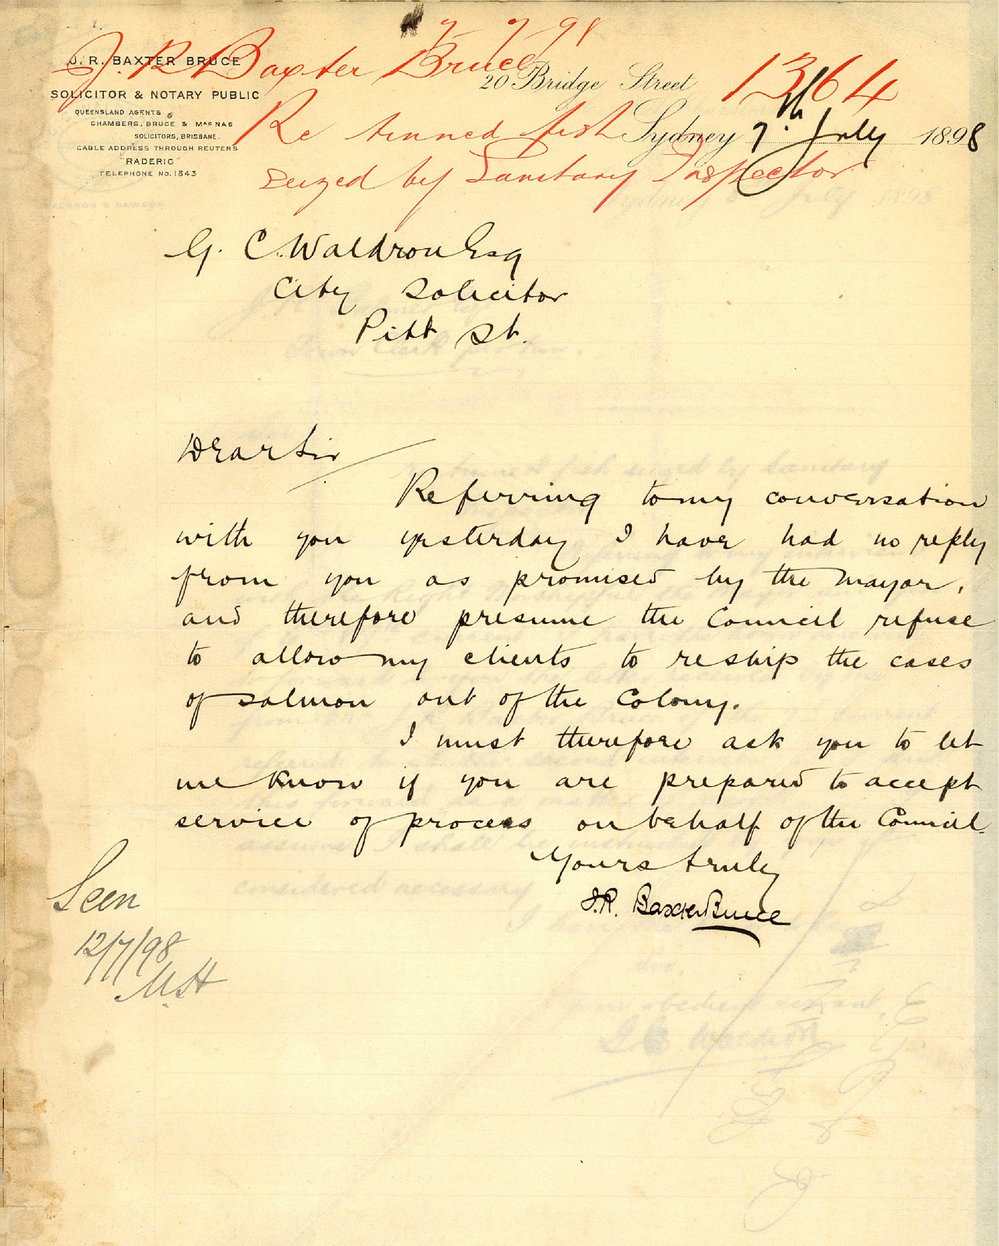 7-7-98
J. R Baxter Bruce
1364
Re tinned fish
seized by Sanitary Inspector
J. R. BAXTER BRUCE
SOLICITOR & NOTARY PUBLIC
QUEENSLAND AGENTS
CHAMBERS, BRUCE & MCNAB
SOLICITORS, BRISBANE.
CABLE ADDRESS THROUGH REUTERS
"RADERIC"
TELEPHONE NO. 1343
20 Bridge Street
Sydney 7th July 1898
G. C. Waldron Esq
City Solicitor
Pitt St.
Dear Sir
Referring to my conversation
with you yesterday I have had no reply
from you as promised by the Mayor,
and therefore presume the Council refuse
to allow my clients to reship the cases
of salmon out of the Colony.
I must therefore ask you to let
me know if you are prepared to accept
service of process on behalf of the Council.
Yours truly
J.R. Baxter Bruce
Seen
12/7/98